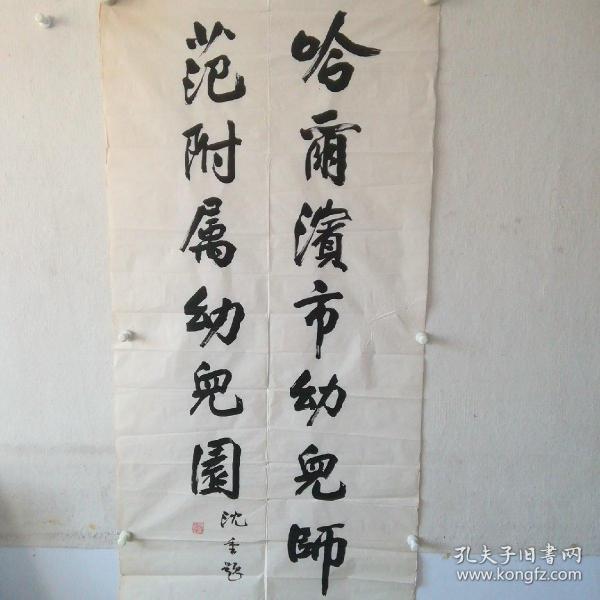 哈爾濱市幼兒師
范附属幼兒園
沈重題
孔夫子旧書网
www.kongfz.com